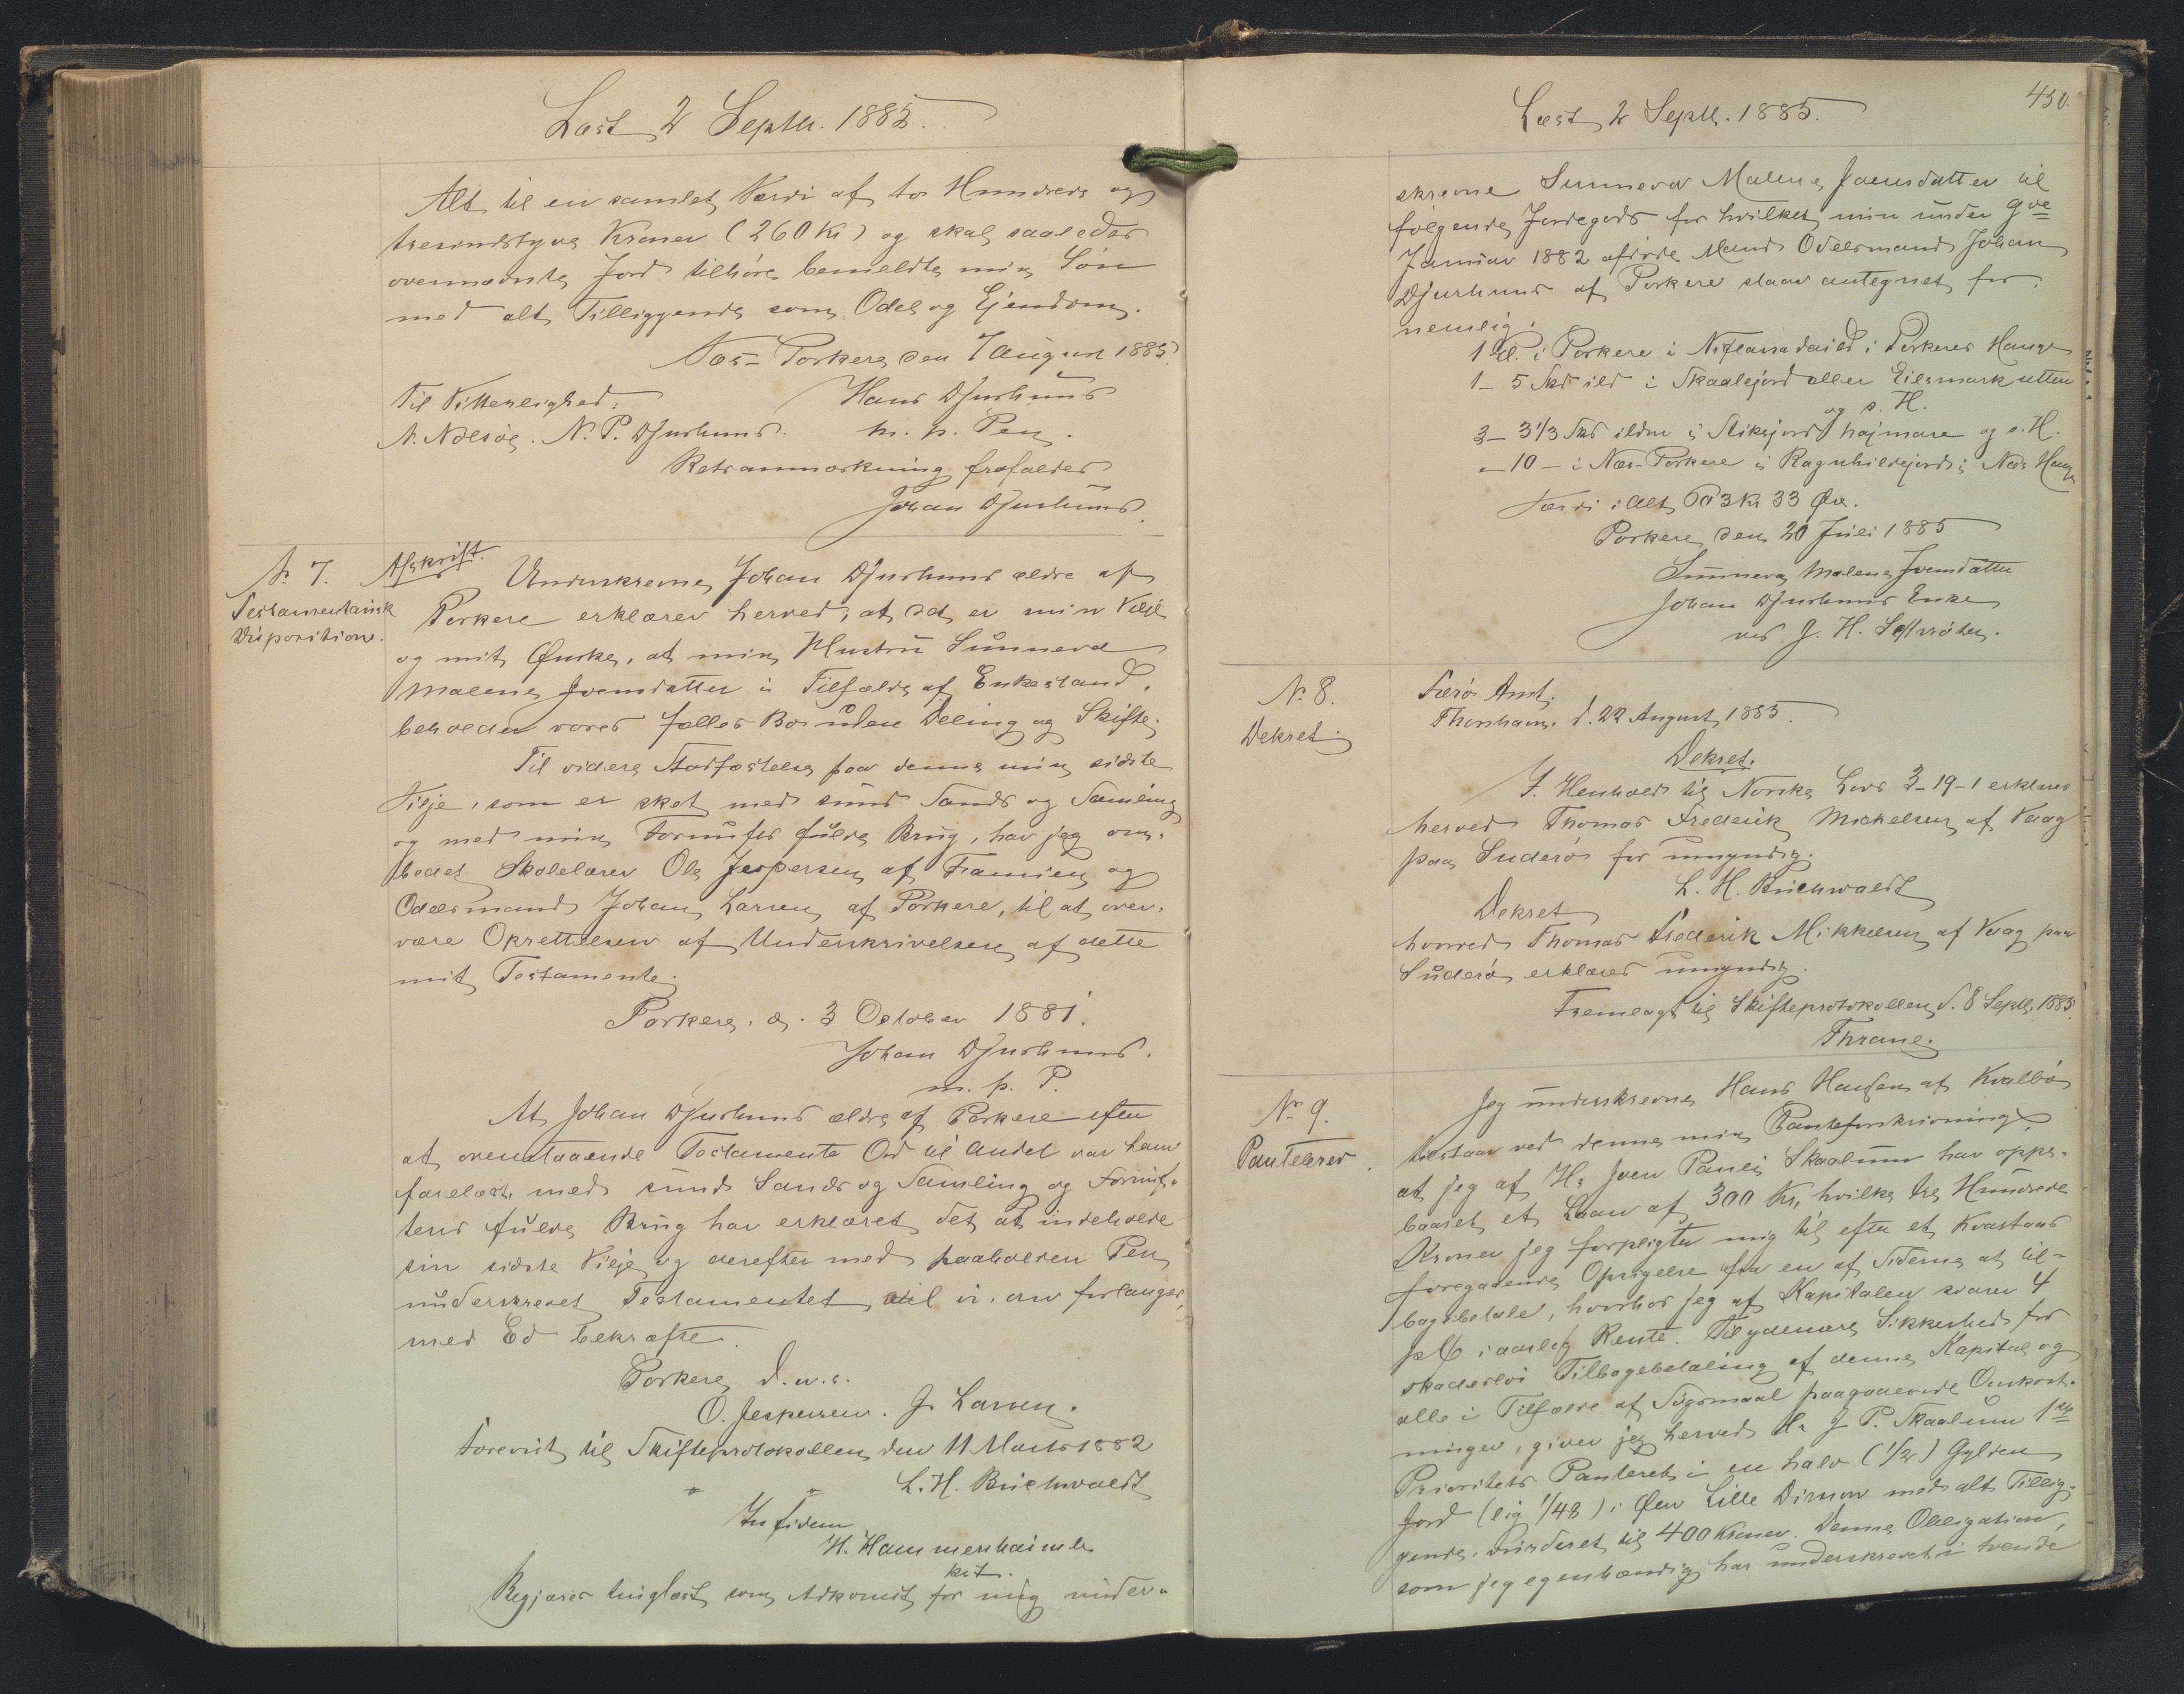 Læst 2 Septbr. 1885.
Alt til en samlet Værdi af to Hundrede og
tresindstyve Kroner (260 Kr) og skal saaledes
ovennævnte Jord tilhøre bemeldte min Søn
med alt Tilliggende som Odel og Ejendom.
Næs-Porkere den 7 August 1885.
Til Vitterlighed: Hans Djurhuus
N. Nolsøe. N. P. Djurhuus. m. p. Pen.
Retsanmærkning frafaldes
Johan Djurhuus.
Nr. 7. Afskrift.
Testamentarisk
Disposition.
Underskrevne Johan Djurhuus ældre af
Porkere erklærer herved, at det er min Vilje
og mit Ønske, at min Hustru Sunneva
Malene Joensdatter i Tilfælde af Enkestand,
beholder vores fælles Bo uden Deling og Skifte.
Til videre Stadfæstelse paa denne min sidste
Vilje, som er sket med sund Sands og Samling
og med min Fornufts fulde Brug, har jeg om-
bedet Skolelærer Ole Jespersen af Framien og
Odelsmand Johan Larsen af Porkere, til at over-
være Oprettelsen af Underskrivelsen af dette
mit Testamente.
Porkere, d. 3 October 1881.
Johan Djurhuus.
m. p. P.
At Johan Djurhuus ældre af Porkere efter
at ovenstaaende Testamente Ord til andet var ham
forelæst, med sund Sands og Samling og Fornuf-
tens fulde Brug har erklæret det at indeholde
sin sidste Vilje og derefter med paaholden Pen
underskrevet Testamentet, vil vi, om forlanges,
med Ed bekræfte.
Porkere d. u. s.
O. Jespersen. J. Larsen.
Forevist til Skifteprotokollen den 11 Marts 1882
" " L. H. Buchwaldt
In fidem
H. Hammershaimb
kst.
Begjæres tinglæst som Adkomst for mig under-
450.
Læst 2 Septb. 1885.
skrevne Sunneva Malene Joensdatter til
følgende Jordegods for hvilket min under 9de
Januar 1882 afdøde Mand Odelsmand Johan
Djurhuus af Porkere staar antegnet for,
nemlig:
1 Gl. i Porkere i i Porkeres Hauge
1 - 5 Skd ild i Skaalejord eller Eilsmark utten
og s. H.
3 - 3 1/3 Skd ilden i Stiksjord hajmare og s. H.
" - 10 - i Næs-Porkere i Ragnhildejord i Næs Hauge
Værdi i alt 603 Kr 33 Øre.
Porkere den 20 Juli 1885
Sunneva Malene Joensdatter
Johan Djurhuus Enke
ved J. H.
Nr. 8.
Dekret.
Færø Amt.
Thorshavn. d. 22 August 1885.
Dekret.
I Henhold til Norske Lovs 3-19-1 erklæres
herved Thomas Frederik Mickelsen af Vaag
paa Suderø for umyndig.
L. H. Buchwaldt
Dekret
hvorved Thomas Frederik Mikkelsen af Vaag paa
Suderø erklæres umyndig.
Fremlagt til Skifteprotokollen d. 8 Septb. 1885.
Thrane.
Nr. 9.
Pantebrev.
Jeg underskrevne Hans Hansen af Kvalbø
tilstaar ved denne min Panteforskrivning,
at jeg af Hr Joen Pauli Skaalum har oppe-
baaret et Laan af 300 Kr, hvilke tre Hundrede
Kroner jeg forpligter mig til efter et Kvartaars
foregaaende Opsigelse fra en af Siderne at til-
bagebetale, hvorhos jeg af Kapitalen svarer 4
pCt i aarlig Rente. Til ydermere Sikkerhed for
skadesløs Tilbagebetaling af denne Kapital og
alle i Tilfælde af Søgsmaal paagaaende Omkost-
ninger, giver jeg herved Hr J. P. Skaalum 1ste
Prioritets Panteret i en halv (1/2) Gylden
Jord (lig 1/48) i Øen Lille Dimon med alt Tillig-
gende, vurderet til 400 Kroner. Denne Obligation,
som jeg egenhændig har underskrevet i tvende